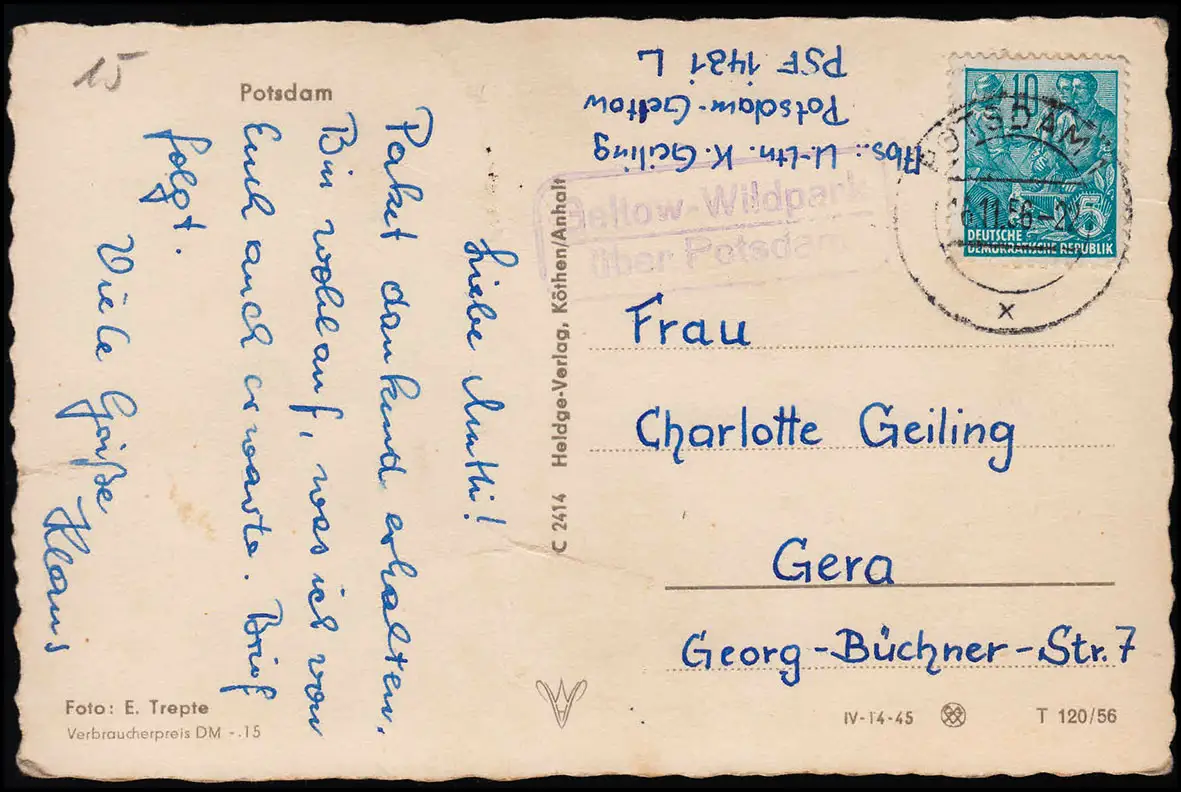 15
Potsdam
Liebe Mutti!
Paket dankend erhalten.
Bin wohlauf, was ich von
Euch auch erwarte. Brief
folgt.
Viele Grüße
Klaus
Foto: E. Trepte
Verbraucherpreis DM -.15
C 2414 Heldge-Verlag, Köthen/Anhalt
Abs.: U-Ltn. K. Geiling
Potsdam-Geltow
PSF 1431 L
Geltow-Wildpark
über Potsdam
10
5
DEUTSCHE
DEMOKRATISCHE REPUBLIK
POTSDAM
11.56-2
x
Frau
Charlotte Geiling
Gera
Georg-Büchner-Str. 7
IV-14-45
T 120/56